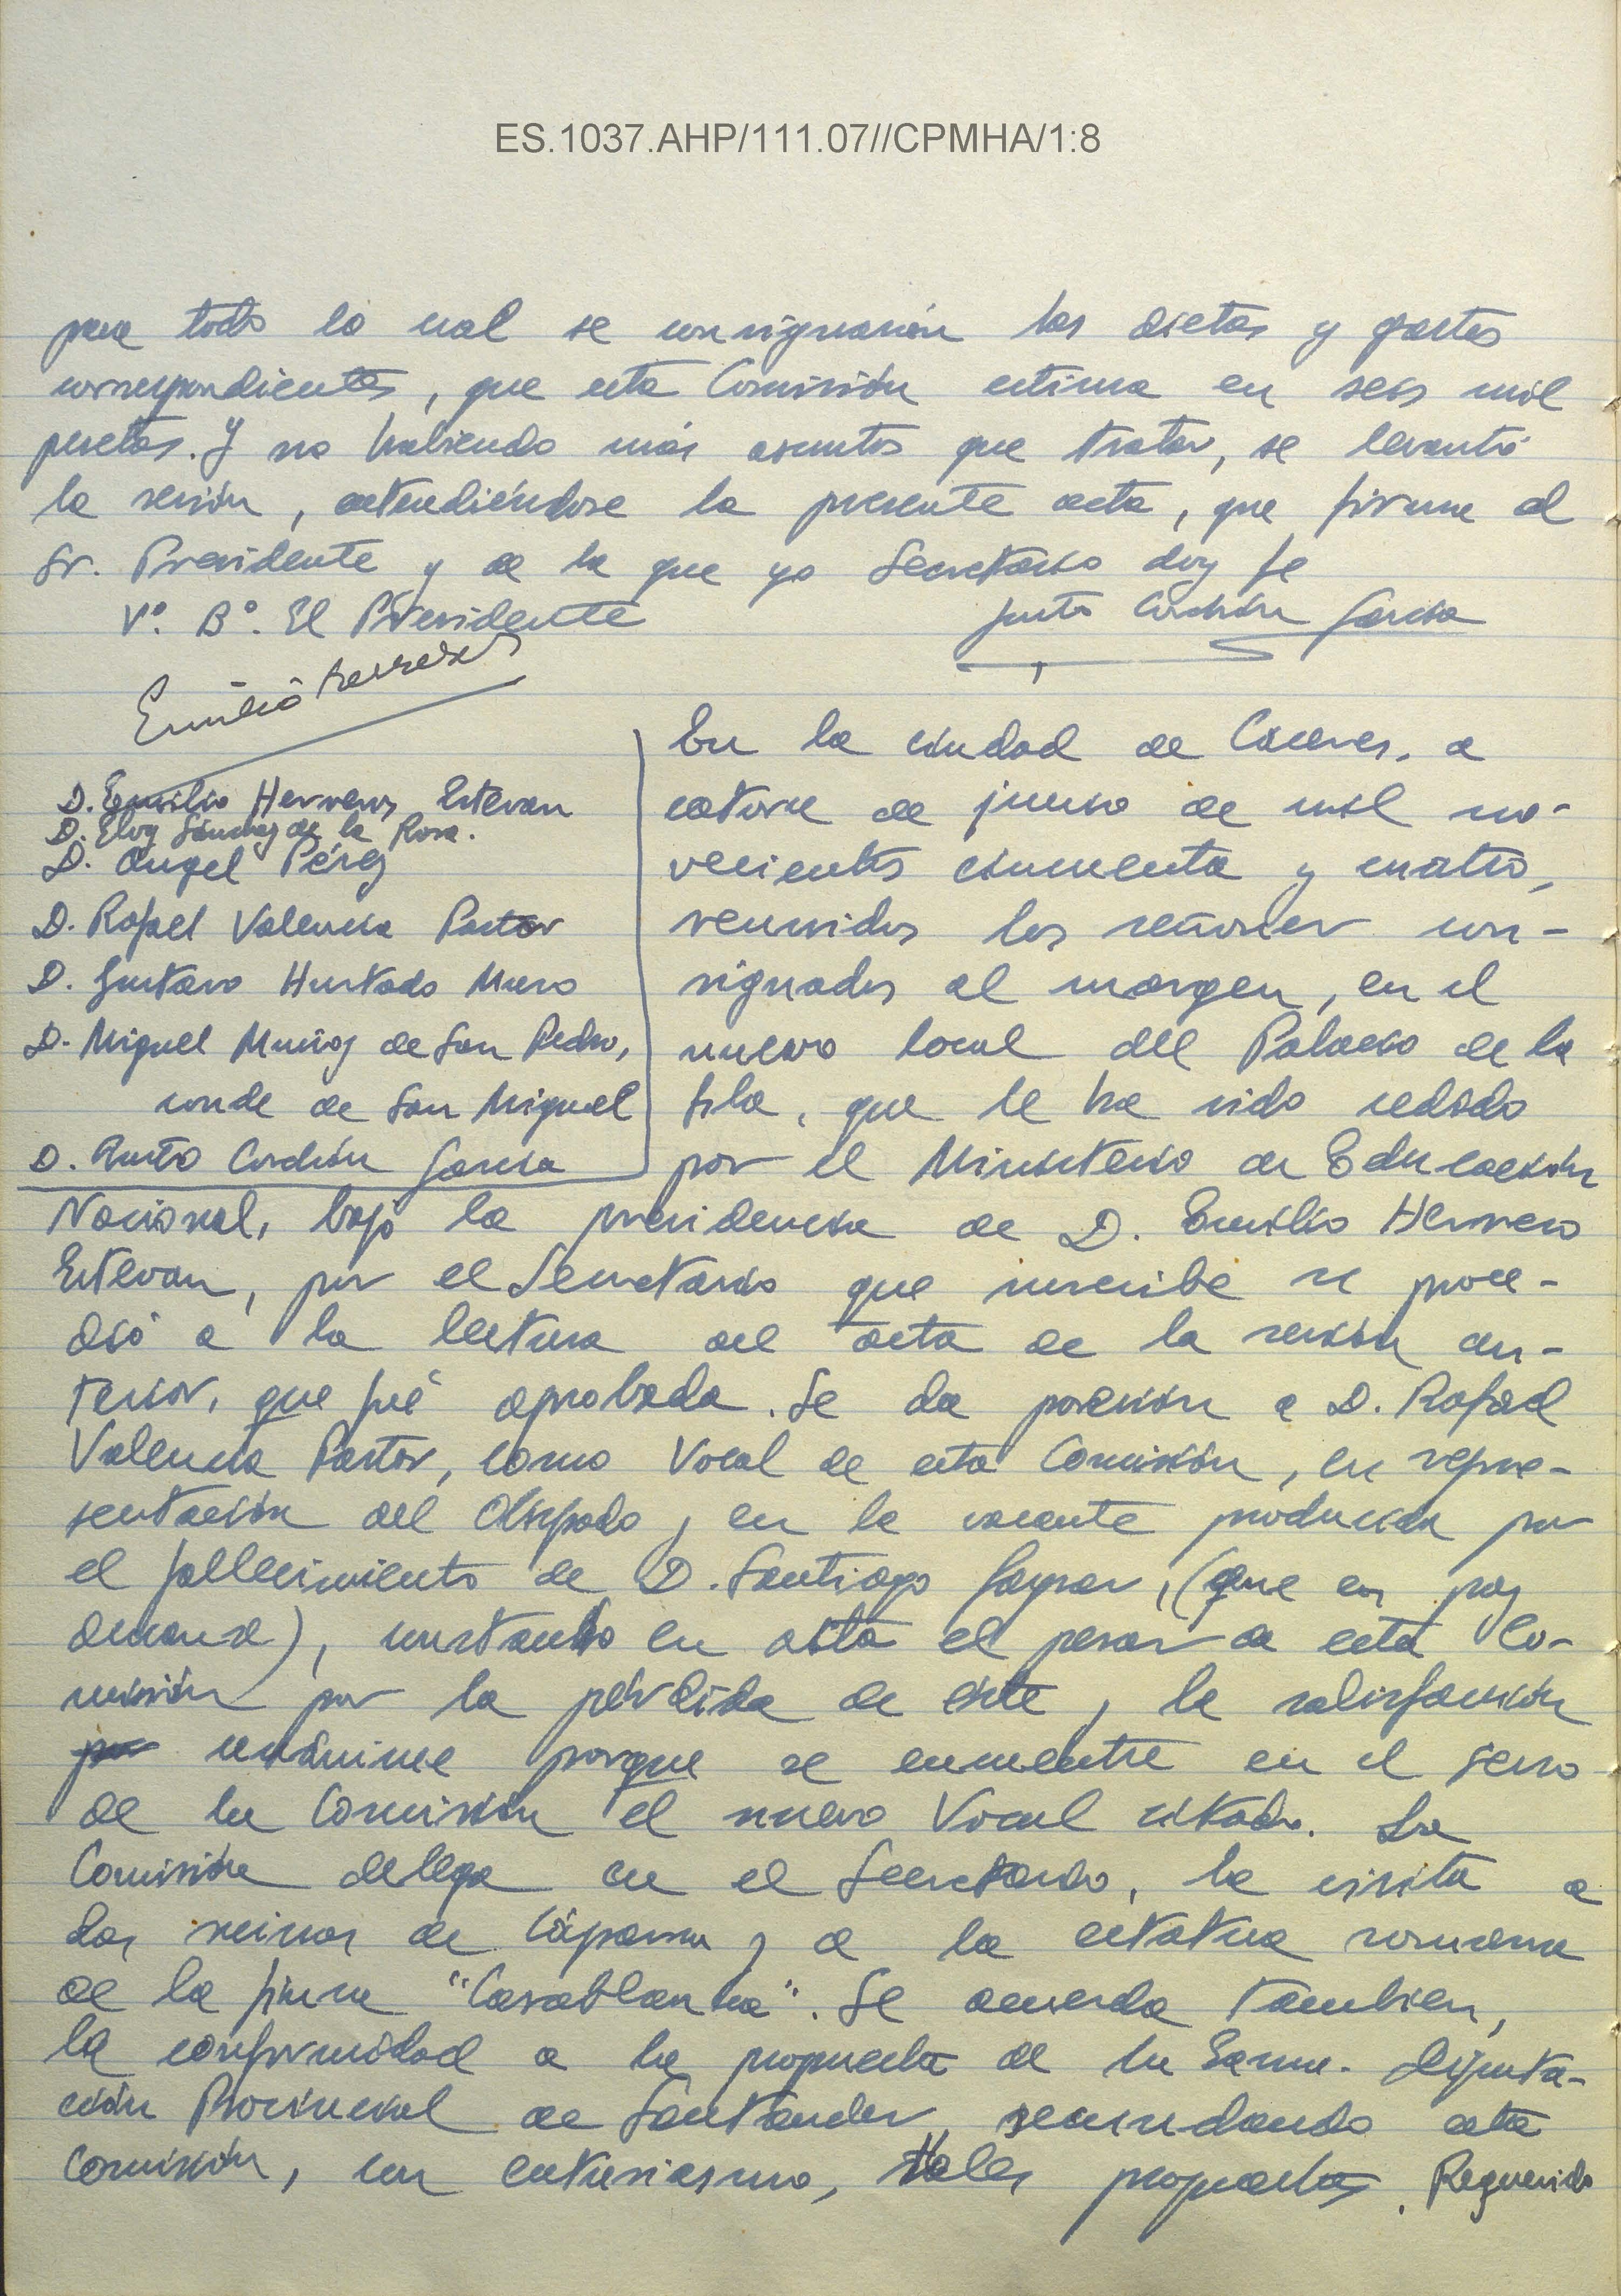 ES.1037.AHP/111.07//CPMHA/1:8
para todo lo cual se consignarán las dietas y gastos
correspondientes, que esta Comisión estima en seis mil
pesetas. Y no habiendo más asuntos que tratar, se levantó
la sesión, extendiéndose la presente acta, que firma el
Sr. Presidente y de la que yo Secretario doy fe
Vº. Bº. El Presidente
Justo Corchón García
Emilio Herreros
D. Emilio Herreros Estevan
D. Eloy Sánchez de la Rosa.
D. Angel Pérez
D. Rafael Valencia Pastor
D. Gustavo Hurtado Muro
D. Miguel Muñoz de San Pedro,
conde de San Miguel
D. Justo Corchón García
En la ciudad de Cáceres, a
catorce de junio de mil no-
vecientos cincuenta y cuatro,
reunidos los señores con-
signados al margen, en el
nuevo local del Palacio de la
Isla, que le ha sido cedido
por el Ministerio de Educación
Nacional, bajo la presidencia de D. Emilio Herrero
Estevan, por el Secretario que suscribe se proce-
dió a la lectura del acta de la sesión an-
terior, que fué aprobada. Se da posesión a D. Rafael
Valencia Pastor, como Vocal de esta Comisión, en repre-
sentación del Obispado, en la vacante producida por
el fallecimiento de D. Santiago Gaspar, (que en paz
descanse), constando en acta el pesar de esta Co-
misión por la pérdida de éste, y la satisfacción
por unánime porque se encuentre en el seno
de la Comisión el nuevo Vocal citado. La
Comisión delega en el Secretario, la visita a
las ruinas de Cáparra y a la estatua romana
de la finca "Casablanca". Se acuerda también,
la conformidad a la propuesta de la Excma. Diputa-
ción Provincial de Santander, secundando esta
Comisión, con entusiasmo, tales propuestas. Requerido